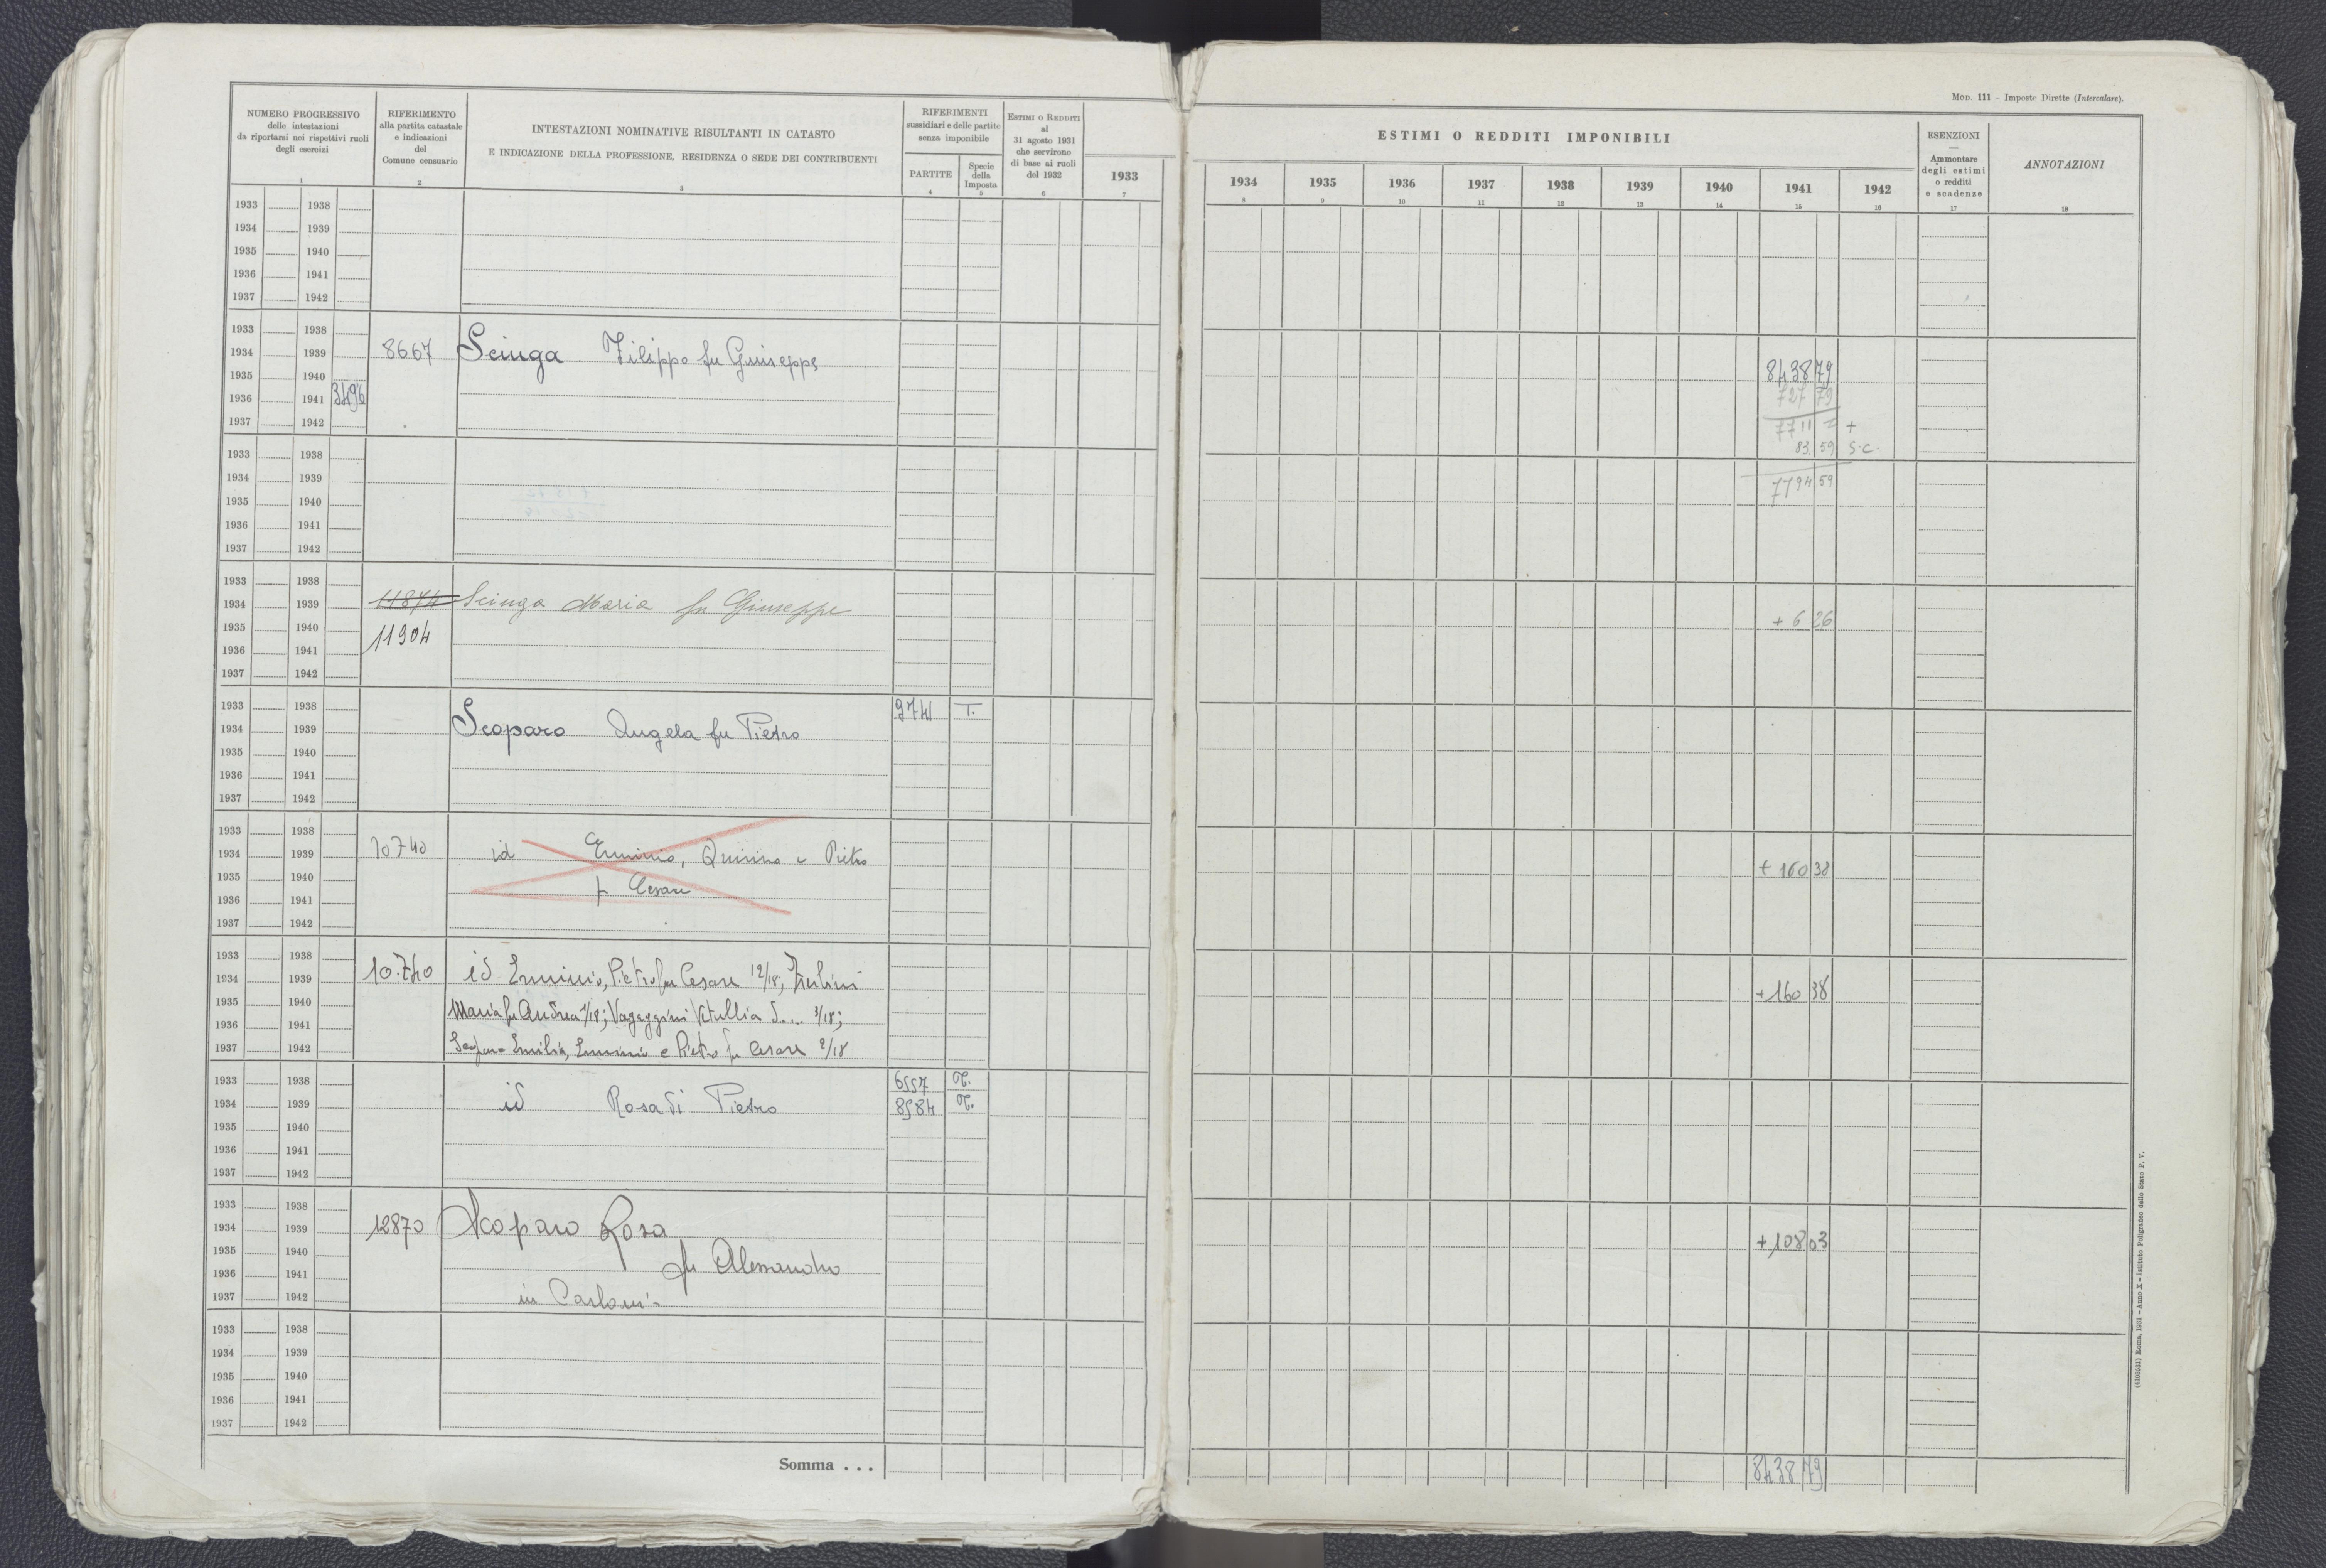 Mod. 111 - Imposte Dirette (Intercalare).
NUMERO PROGRESSIVO
delle intestazioni
da riportarsi nei rispettivi ruoli
degli esercizi
1
RIFERIMENTO
alla partita catastale
e indicazioni
del
Comune censuario
2
INTESTAZIONI NOMINATIVE RISULTANTI IN CATASTO
E INDICAZIONE DELLA PROFESSIONE, RESIDENZA O SEDE DEI CONTRIBUENTI
3
RIFERIMENTI
sussidiari e delle partite
senza imponibile
PARTITE
4
Specie
della
Imposta
5
ESTIMI O REDDITI
al
31 agosto 1931
che servirono
di base ai ruoli
del 1932
6
1933
7
ESTIMI O REDDITI IMPONIBILI
1934 1935 1936 1937 1938 1939 1940 1941 1942
8 9 10 11 12 13 14 15 16
ESENZIONI
—
Ammontare
degli estimi
o redditi
e scadenze
17
ANNOTAZIONI
18
1933 1938
1934 1939
1935 1940
1936 1941
1937 1942
1933 1938
1934 1939 8667 Scinga Filippo fu Giuseppe
1935 1940 8438 79
1936 1941 3496 727 79
1937 1942 7711 = +
83 59 S.C.
1933 1938
1934 1939 7794 59
1935 1940
1936 1941
1937 1942
1933 1938
1934 1939 11874 Scinga Maria fu Giuseppe + 6 26
1935 1940 11904
1936 1941
1937 1942
1933 1938 9741 T.
1934 1939 Scoparo Angela fu Pietro
1935 1940
1936 1941
1937 1942
1933 1938
1934 1939 10740 id Erminio, Quirino e Pietro + 160 38
1935 1940 fu Cesare
1936 1941
1937 1942
1933 1938
1934 1939 10.740 id Erminio, Pietro fu Cesare 12/18; + 160 38
1935 1940 Maria fu Andrea 1/18; Vageggini Vetullia d.... 3/18;
1936 1941
1937 1942 Emilia, Erminio e Pietro fu Cesare 2/18
1933 1938 6557 T.
1934 1939 id Rosa di Pietro 8584 T.
1935 1940
1936 1941
1937 1942
1933 1938
1934 1939 12870 Scoparo Rosa + 108 03
1935 1940 fu Alessandro
1936 1941
1937 1942 in Carloni
1933 1938
1934 1939
1935 1940
1936 1941
1937 1942
Somma . . . 8438 79
(4100681) Roma, 1931 - Anno X - Istituto Poligrafico dello Stato P. V.